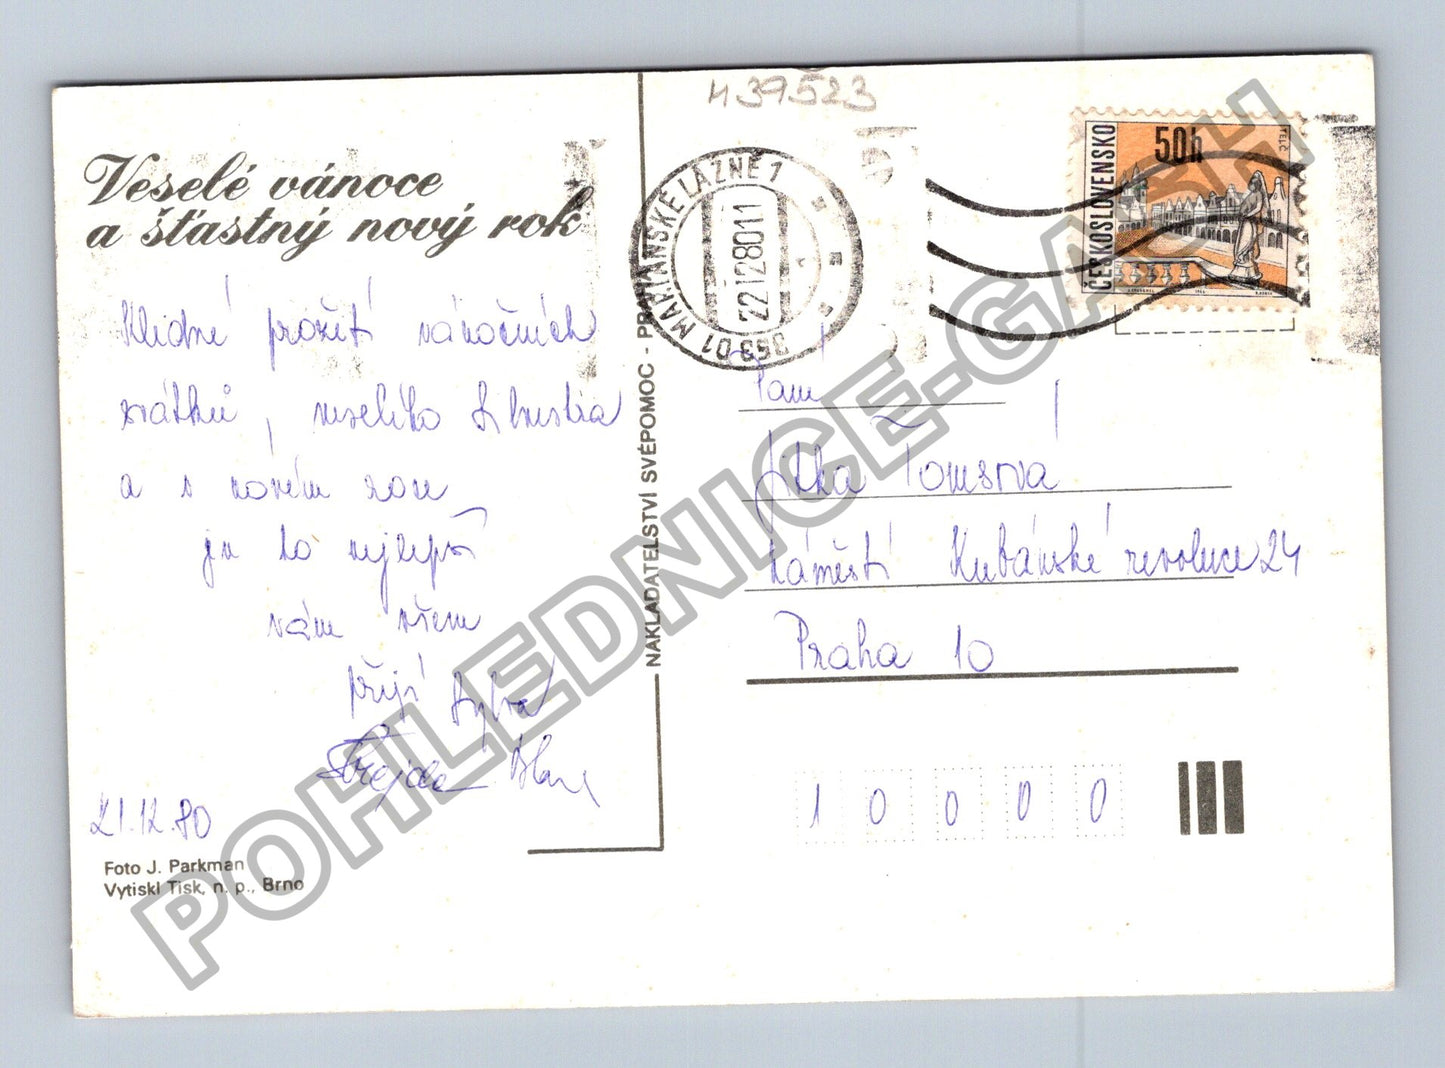 H39523
Veselé vánoce
a šťastný nový rok
Klidné prožití vánočních
svátků, veselého Silvestra
a v novém roce
jen to nejlepší
vám všem
přejí
21.12.80
Foto J. Parkman
Vytiskl Tisk, n. p., Brno
NAKLADATELSTVÍ SVÉPOMOC - PRAHA
353 01 MARIÁNSKÉ LÁZNĚ 1
22.12.80 11
ČESKOSLOVENSKO
50h
TELČ
Paní
Jitka Tomsová
Náměstí Kubánské revoluce 24
Praha 10
10000
POHLEDNICE-GASH